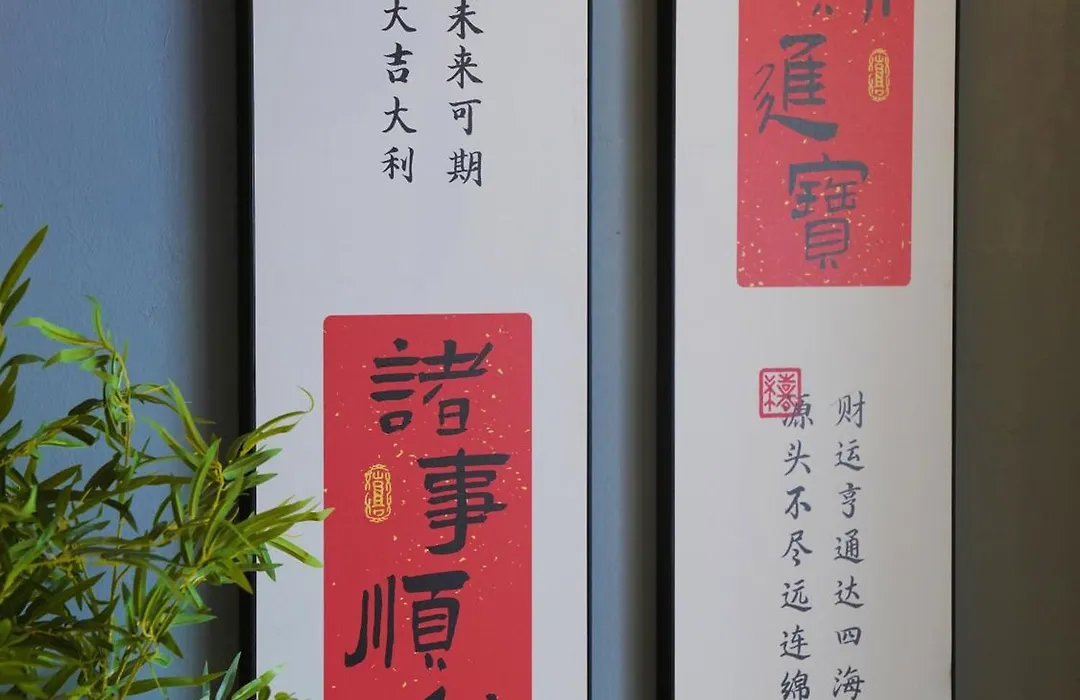 未来可期
大吉大利
諸事順
進寶
财运亨通达四海
源头不尽远连绵